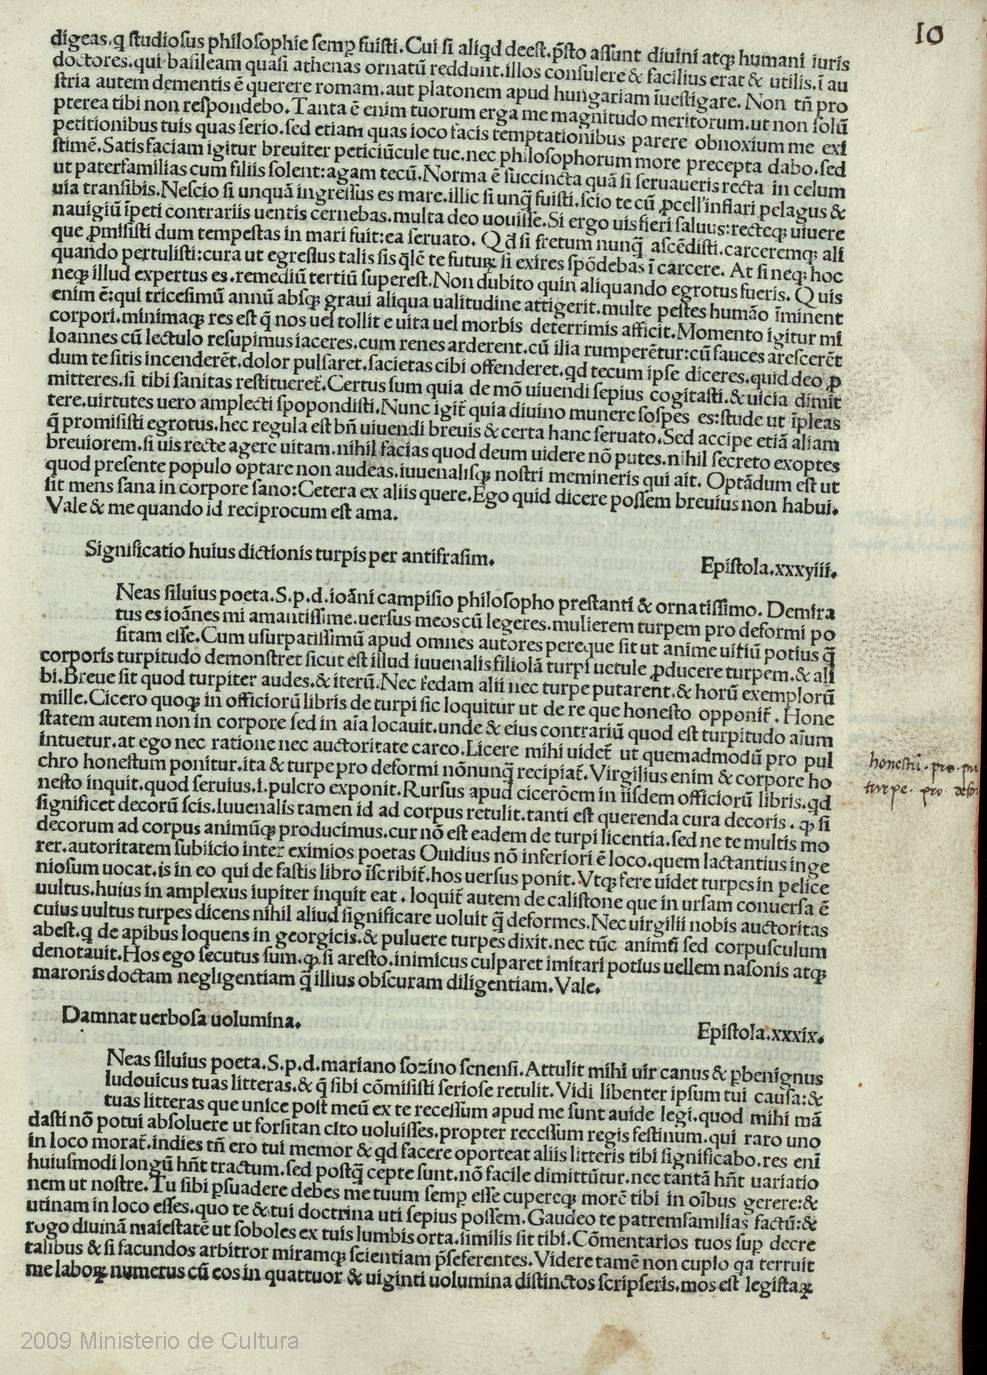 10
digeas.q studiosus philosophie semp fuisti.Cui si aliqd deest.p̄sto assunt diuini atq; humani iuris
doctores.qui basileam quasi athenas ornatū reddunt.illos consulere & facilius erat & utilis.ī au
stria autem dementis ē querere romam.aut platonem apud hungariam īuestigare. Non tn̄ pro
pterea tibi non respondebo.Tanta ē enim tuorum erga me magnitudo meritorum.ut non solū
petitionibus tuis quas serio.sed etiam quas ioco facis temptationibus parere obnoxium me exi
stimē.Satisfaciam igitur breuiter peticiūcule tue.nec philosophorum more precepta dabo.sed
ut paterfamilias cum filiis solent:agam tecū.Norma ē succincta quā si seruaueris recta in celum
uia transibis.Nescio si unquā ingressus es mare.illic si unq̄ fuisti.scio te cū ꝓcell'inflari pelagus &
nauigiū īpeti contrariis uentis cernebas.multa deo uouisse.Si ergo uis fieri saluus:recteq; uiuere
que ꝓmisisti dum tempestas in mari fuit:ea seruato. Qd si fretum nunq̄ ascēdisti.carceremq; ali
quando pertulisti:cura ut egressus talis sis q̄lē te futuꝝ si exires spōdebas ī carcere. At si neq; hoc
neq; illud expertus es.remediū tertiū superest.Non dubito quin aliquando egrotus fueris. Quis
enim ē:qui tricesimū annū absq; graui aliqua ualitudine attigerit.multe pestes humāo īminent
corpori.minimaq; res est q̄ nos uel tollit e uita uel morbis deterrimis afficit.Momento igitur mi
Ioannes cū lectulo resupimus iaceres.cum renes arderent.cū ilia rumperētur:cū fauces arescerēt
dum te sitis incenderēt.dolor pulsaret.sacietas cibi offenderet.qd tecum ipse diceres.quid deo ꝓ
mitteres.si tibi sanitas restitueret̄.Certus sum quia de mō uiuendi sepius cogitasti.& uicia dimit
tere.uirtutes uero amplecti spopondisti.Nunc igit̄ quia diuino munere sospes es:stude ut īpleas
q̄ promisisti egrotus.hec regula est bn̄ uiuendi breuis & certa hanc seruato.Sed accipe etiā aliam
breuiorem.si uis recte agere uitam.nihil facias quod deum uidere nō putes.nihil secreto exoptes
quod presente populo optare non audeas.iuuenalisq; nostri memineris qui ait. Optādum est ut
sit mens sana in corpore sano:Cetera ex aliis quere.Ego quid dicere possem breuius non habui.
Vale & me quando id reciprocum est ama.
Significatio huius dictionis turpis per antifrasim. Epistola.xxxyiii.
Neas siluius poeta.S.p.d.ioāni campisio philosopho prestanti & ornatissimo. Demira
tus es ioānes mi amantissime.uersus meos cū legeres.mulierem turpem pro deformi po
sitam esse.Cum usurpatissimū apud omnes autores pereque sit ut anime uitiū potius q̄
corporis turpitudo demonstret sicut est illud iuuenalis filiolā turpi uetule ꝓducere turpem.& ali
bi.Breue sit quod turpiter audes.& iterū.Nec tedam alii nec turpe putarent.& horū exemplorū
mille.Cicero quoq; in officiorū libris de turpi sic loquitur ut de re que honesto opponit̄. Hone
statem autem non in corpore sed in aīa locauit.unde & eius contrariū quod est turpitudo aīum
intuetur.at ego nec ratione nec auctoritate careo.Licere mihi uidet̄ ut quemadmodū pro pul
chro honestum ponitur.ita & turpe pro deformi nōnunq̄ recipiat̄.Virgilius enim & corpore ho
nesto inquit.quod seruius.i.pulcro exponit.Rursus apud cicerōem in iisdem officiorū libris.qd
significet decorū scis.Iuuenalis tamen id ad corpus retulit.tanti est querenda cura decoris. q; si
decorum ad corpus animūq; producimus.cur nō est eadem de turpi licentia.sed ne te multis mo
rer.autoritatem subiicio inter eximios poetas Ouidius nō inferiori ē loco.quem lactantius inge
niosum uocat.is in eo qui de fastis libro iscribit̄.hos uersus ponit.Vtq; fere uidet turpes in pelice
uultus.huius in amplexus iupiter inquit eat. loquit̄ autem de calistone que in ursam conuersa ē
cuius uultus turpes dicens nihil aliud significare uoluit q̄ deformes.Nec uirgilii nobis auctoritas
abest.q de apibus loquens in georgicis.& puluere turpes dixit.nec tūc animū sed corpusculum
denotauit.Hos ego secutus sum.q; si aresto.inimicus culparet imitari potius uellem nasonis atq;
maronis doctam negligentiam q̄ illius obscuram diligentiam.Vale.
honestū. pro. pu
turpe. pro defor
Damnat uerbosa uolumina. Epistola.xxxix.
Neas siluius poeta.S.p.d.mariano sozino senensi.Attulit mihi uir canus & ꝑbenignus
ludouicus tuas litteras.& q̄ sibi cōmisisti seriose retulit.Vidi libenter ipsum tui causa:&
tuas litteras que unice post meū ex te recessum apud me sunt auide legi.quod mihi mā
dasti nō potui absoluere ut forsitan cito uoluisses.propter recessum regis festinum.qui raro uno
in loco morat̄.indies tn̄ ero tui memor & qd facere oporteat aliis litteris tibi significabo.res eni
huiusmodi longū hn̄t tractum.sed postq̄ cepte sunt.nō facile dimittūtur.nec tantā hn̄t uariatio
nem ut nostre.Tu sibi ꝑsuadere debes me tuum semp esse cupereq; morē tibi in oībus gerere:&
utinam in loco esses.quo te & tui doctrina uti sepius possem.Gaudeo te patremfamilias factū:&
rogo diuinā maiestatē ut soboles ex tuis lumbis orta.similis sit tibi.Cōmentarios tuos sup decre
talibus & si facundos arbitror miramq; scientiam p̄seferentes.Videre tamē non cupio qa terruit
me laboꝝ numerus cū eos in quattuor & uiginti uolumina distinctos scripseris.mos est legistaꝝ
2009 Ministerio de Cultura